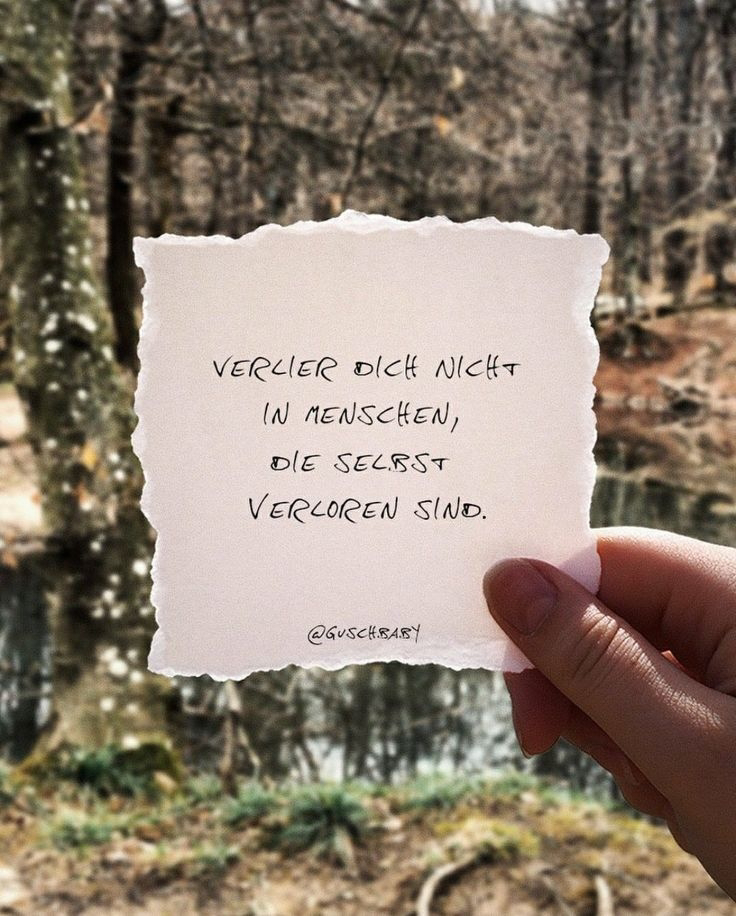 VERLIER DICH NICHT
IN MENSCHEN,
DIE SELBST
VERLOREN SIND.
@GUSCH.BABY